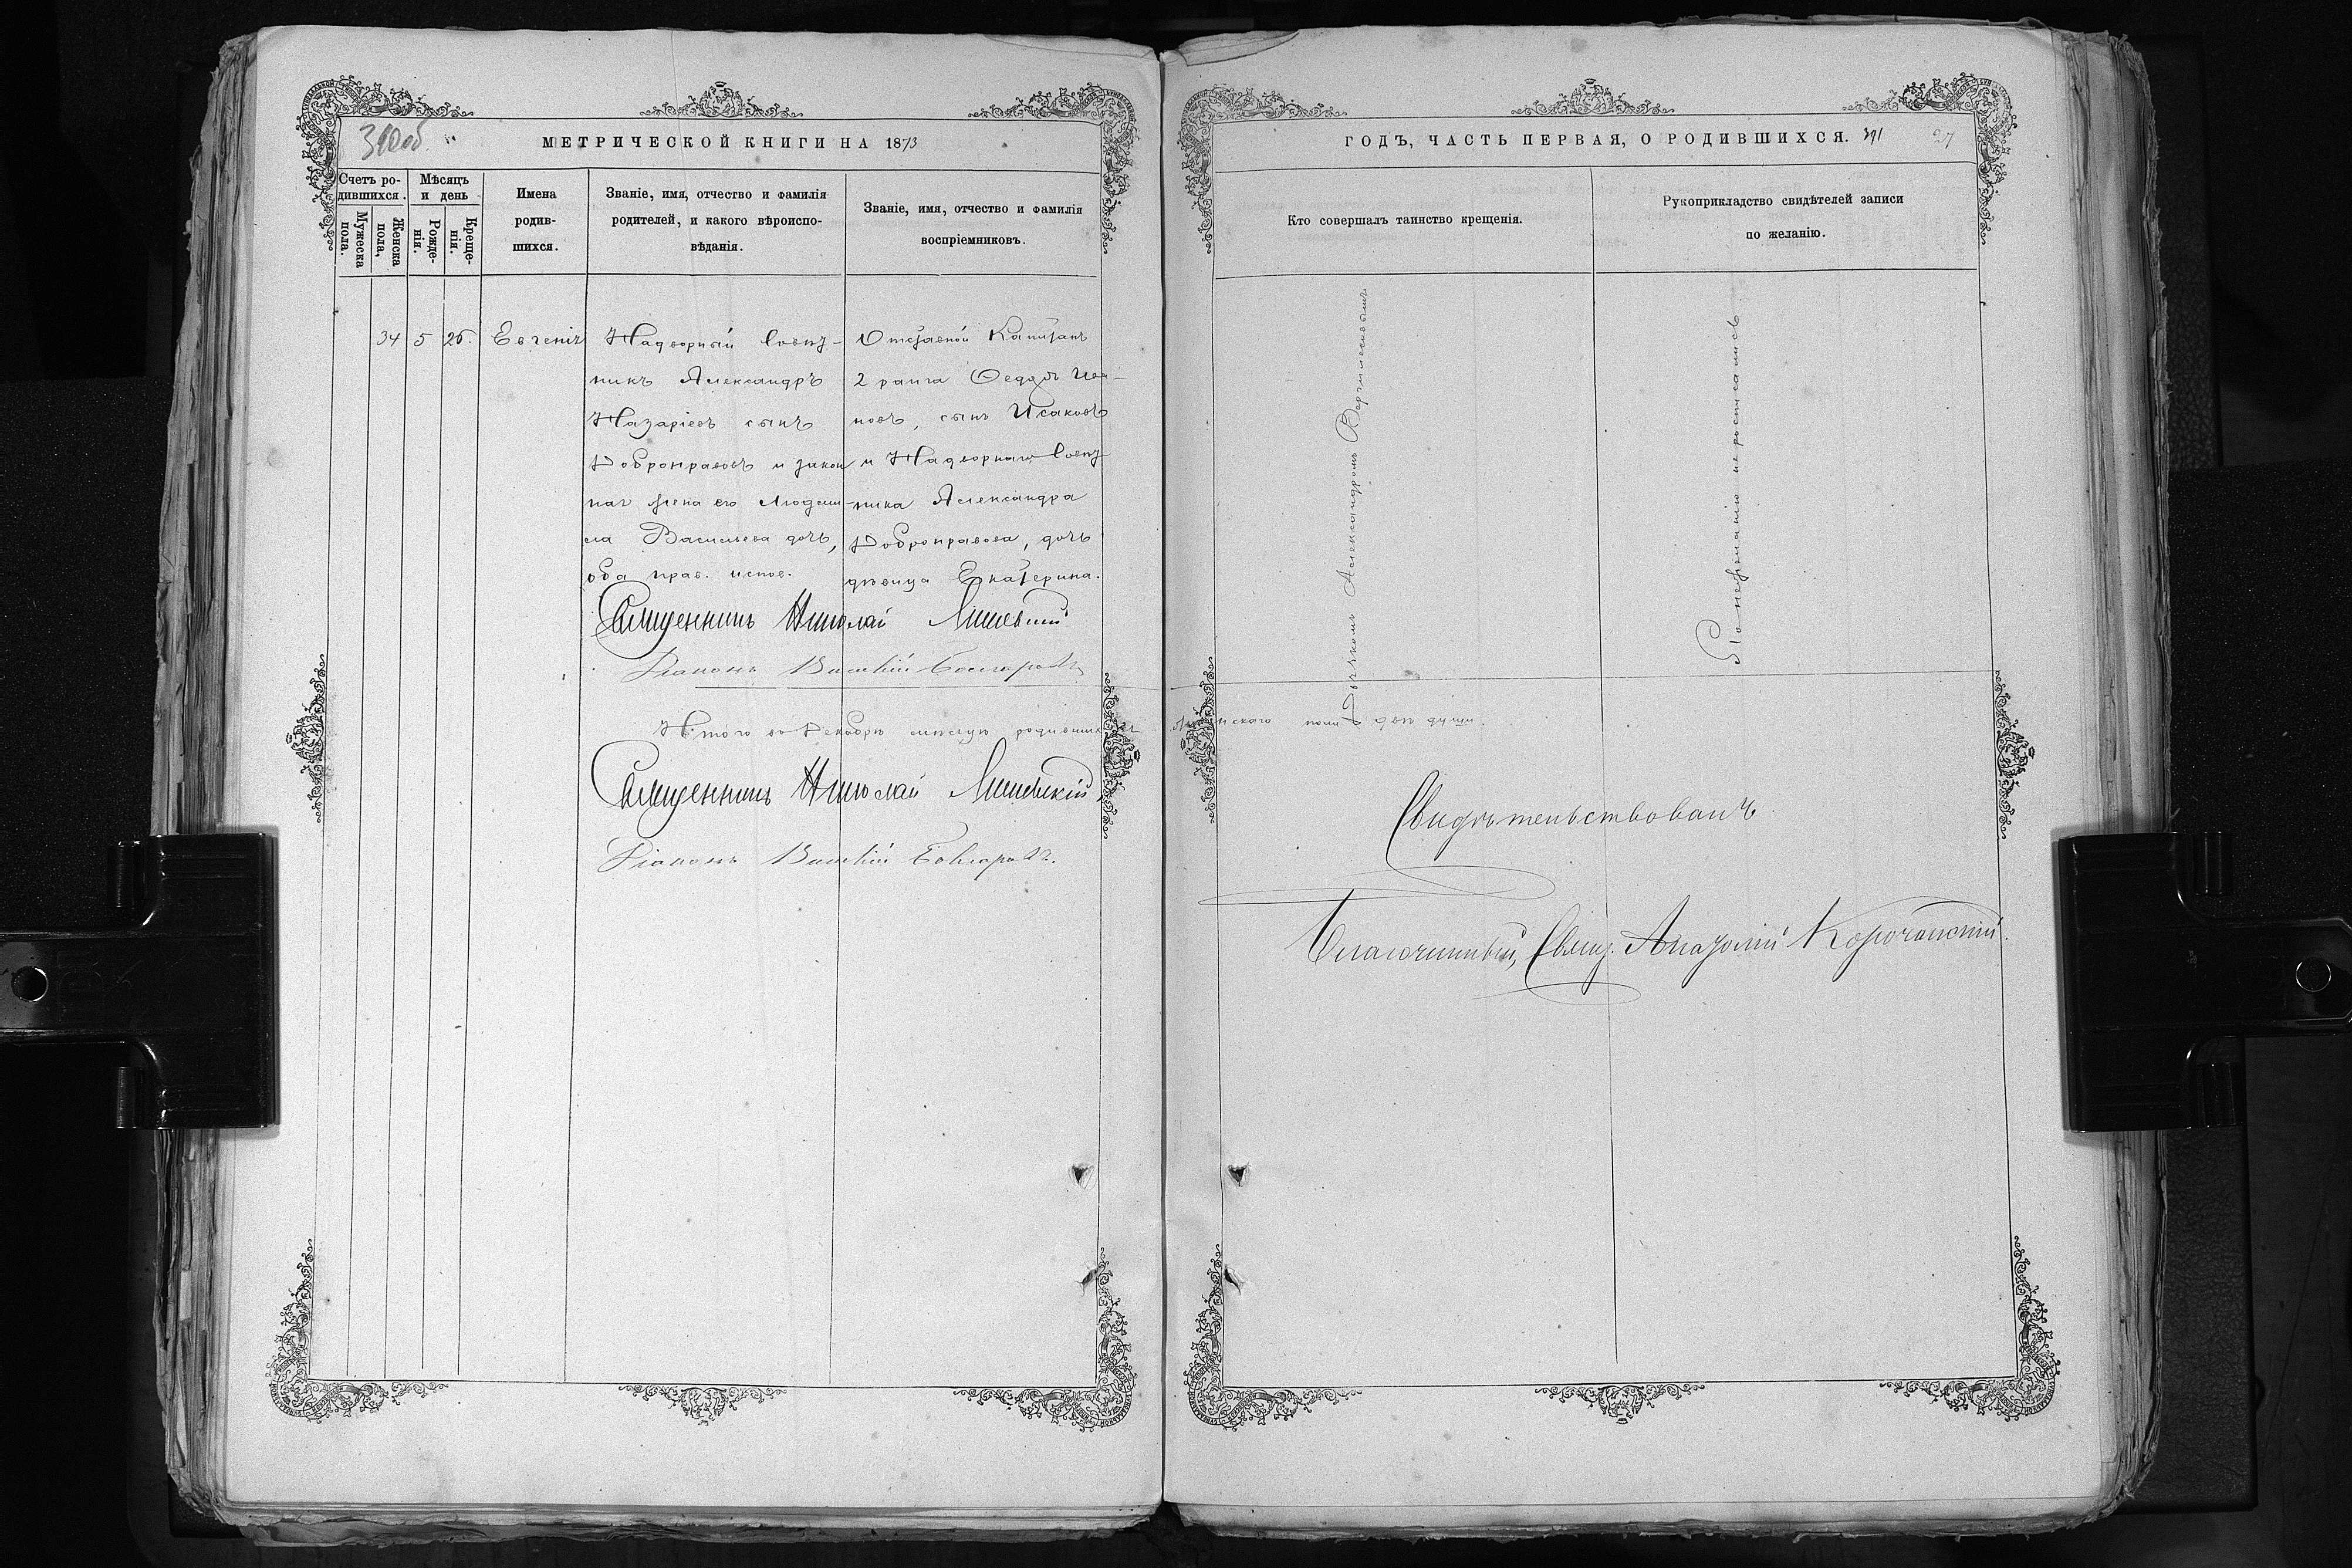 310об.
МЕТРИЧЕСКОЙ КНИГИ НА 1873
Счетъ ро-
дившихся.
Мужеска
пола.
Женска
пола,
Мѣсяцъ
и день
Рожде-
нія.
Креще-
нія.
Имена
родив-
шихся.
Званіе, имя, отчество и фамилія
родителей, и какого вѣроиспо-
вѣданія.
Званіе, имя, отчество и фамилія
воспріемниковъ.
34 5 26. Евгенія
Надворный Совѣт-
никъ Александръ
Назаріевъ сынъ
Добронравовъ и закон
ная жена его Людми
ла Васильева дочь,
оба прав. испов.
Отставной Капитанъ
2 ранга Ѳедоръ Ива-
новъ, сынъ Исаковъ
и Надворнаго Совѣт-
ника Александра
Добронравова, дочь
дѣвица Екатерина.
Священникъ Николай
Діаконъ Василій
Итого въ Декабрѣ мѣсяцѣ родившихся
Священникъ Николай
Діаконъ Василій
ГОДЪ, ЧАСТЬ ПЕРВАЯ, О РОДИВШИХСЯ. 391 27
Кто совершалъ таинство крещенія.
Рукоприкладство свидѣтелей записи
по желанію.
Александромъ
По нежеланію не росписались.
Женскаго пола двѣ души.
Свидѣтельствовалъ
Благочинный, Свящ. Анатолій Корочанскій.